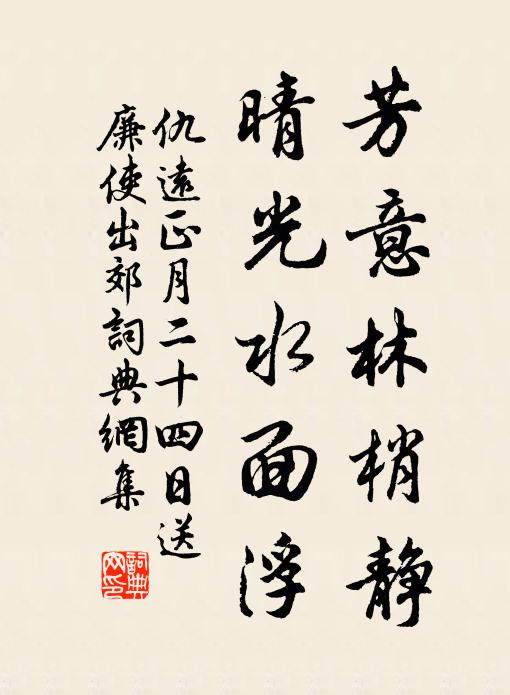 芳意林梢静
晴光水面浮
仇遠正月二十四日送
廉使出郊詞典網集
詞典
网印